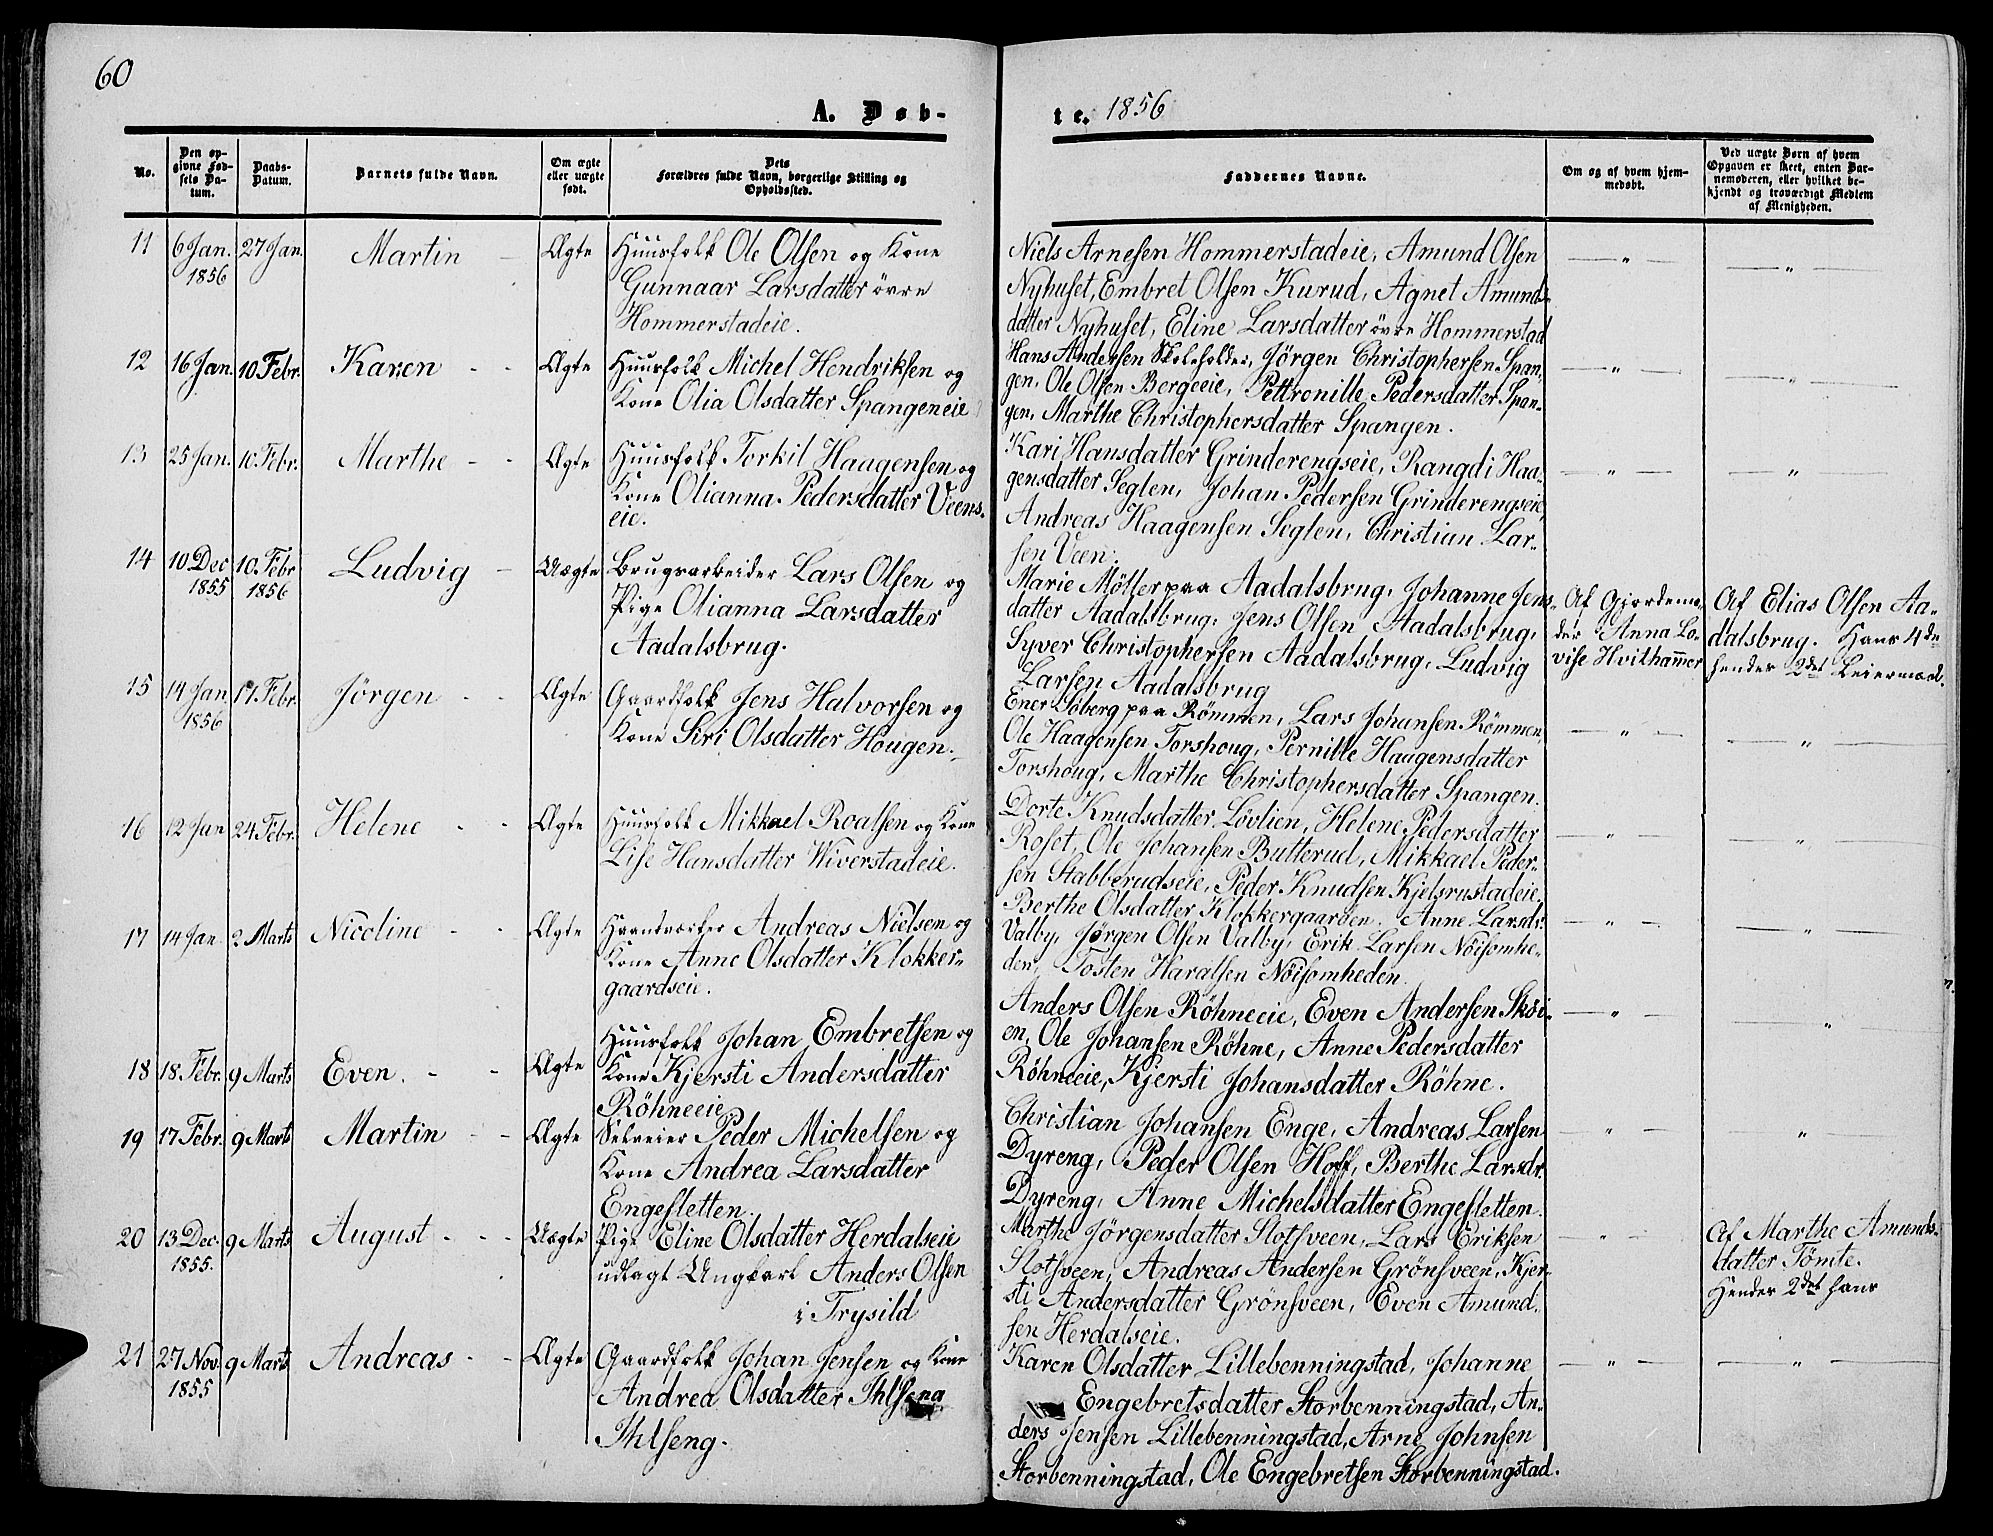 60
A. Døb-
No.
Den op-
givne Fød-
sels Da-
tum.
Daabs-
Datum.
Barnets fulde Navn.
Om ægte
eller uægte
født.
Dets
Forældres fulde Navn, borgerlige Stilling og
Opholdssted.
11 6 Jan. 1856 27 Jan. Martin Ægte Huusfolk Ole Olsen og Kone
Gunnaar Larsdatter övre
Hommerstadeie.
12 16 Jan. 10 Febr. Karen - - Ægte Huusfolk Michel Hendriksen og
Kone Olia Olsdatter Spangeneie
13 25 Jan. 10 Febr. Marthe - - Ægte Huusfolk Torkil Haagensen og
Kone Olianna Pedersdatter Veens-
eie.
14 10 Dec 1855 10 Febr 1856 Ludvig - Uægte Brugsarbeider Lars Olsen og
Pige Olianna Larsdatter
Aadalsbrug.
15 14 Jan 1856 17 Febr. Jörgen - - Ægte Gaardfolk Jens Halvorsen og
Kone Siri Olsdatter Hougen.
16 12 Jan 24 Febr. Helene - - Ægte Huusfolk Mikkael Roalsen og Kone
Lise Hansdatter Wiverstadeie.
17 14 Jan 2 Marts Nicoline - - Ægte Haandværker Andreas Nielsen og
Kone Anne Olsdatter Klokker-
gaardseie.
18 18 Febr. 9 Marts Even. - - Ægte Huusfolk Johan Embretsen og
Kone Kjersti Andersdatter
Röhneeie
19 17 Febr. 9 Marts Martin - - Ægte Selveier Peder Michelsen og
Kone Andrea Larsdatter
Engesletten.
20 13 Dec. 1855. 9 Marts August - - - Uægte Pige Eline Olsdatter Herdalseie
udlagt Ungkarl Anders Olsen
i Trysild
21 27 Nov. 1855 9 Marts Andreas - - Ægte Gaardfolk Johan Jensen og Kone
Andrea Olsdatter Ihlseng
Ihlseng.
te. 1856
Faddernes Navne.
Om og af hvem hjem-
medøbt.
Ved uægte Børn af hvem
Opgaven er skeet, enten Bar-
nemoderen, eller hvilket be-
kjendt og troværdigt Medlem
af Menigheden.
Niels Arnesen Hommerstadeie, Amund Olsen
Nyhuset, Embret Olsen Kurud, Agnet Amunds-
datter Nyhuset, Eline Larsdatter övre Hommerstad
Hans Andersen Skoleholder, Jörgen Christophersen Span-
gen, Ole Olsen Bergeeie, Pettronille Pedersdatter Span-
gen, Marthe Christophersdatter Spangen.
Kari Hansdatter Grinderengseie, Rangdi Haa-
gensdatter Seglen, Johan Pedersen Grinderengseie,
Andreas Haagensen Seglen, Christian Lar-
sen Veen.
Marie Möller paa Aadalsbrug, Johanne Jens-
datter Aadalsbrug, Jens Olsen Aadalsbrug,
Syver Christophersen Aadalsbrug, Ludvig
Larsen Aadalsbrug
Af Gjordemo-
der Anna Lo-
vise Hvithammer
Af Elias Olsen Aa-
dalsbrug. Hans 4de
hendes 2det Leiermaal.
Ener Söberg paa Römmen, Lars Johansen Römmen,
Ole Haagensen Torshoug, Pernille Haagensdatter
Torshoug, Marthe Christophersdatter Spangen.
Dorte Knudsdatter Lövlien, Helene Pedersdatter
Roset, Ole Johansen Butterud, Mikkael Peder-
sen Stabberudseie, Peder Knudsen Kjelsrustadeie.
Berthe Olsdatter Klokkergaarden. Anne Larsdr
Valby, Jörgen Olsen Valby, Erik Larsen Nöisomhe-
den, Tosten Haralsen Nöisomheden.
Anders Olsen Röhneeie, Even Andersen Sköi-
en, Ole Johansen Röhne, Anne Pedersdatter
Röhneeie, Kjersti Johansdatter Röhne.
Christian Johansen Enge, Andreas Larsen
Dyreng, Peder Olsen Hoff, Berthe Larsdr.
Dyreng, Anne Michelsdatter Engesletten.
Marthe Jörgensdatter Slotsveen, Lars Eriksen
Slotsveen, Andreas Andersen Grönsveen, Kjer-
sti Andersdatter Grönsveen, Even Amund-
sen Herdalseie.
Af Marthe Amunds-
datter Tömte.
Hendes 2det hans
Karen Olsdatter Lillebenningstad, Johanne
Engebretsdatter Storbenningstad, An-
ders Jensen Lillebenningstad, Arne Johnsen
Storbenningstad, Ole Engebretsen Storbenningstad.